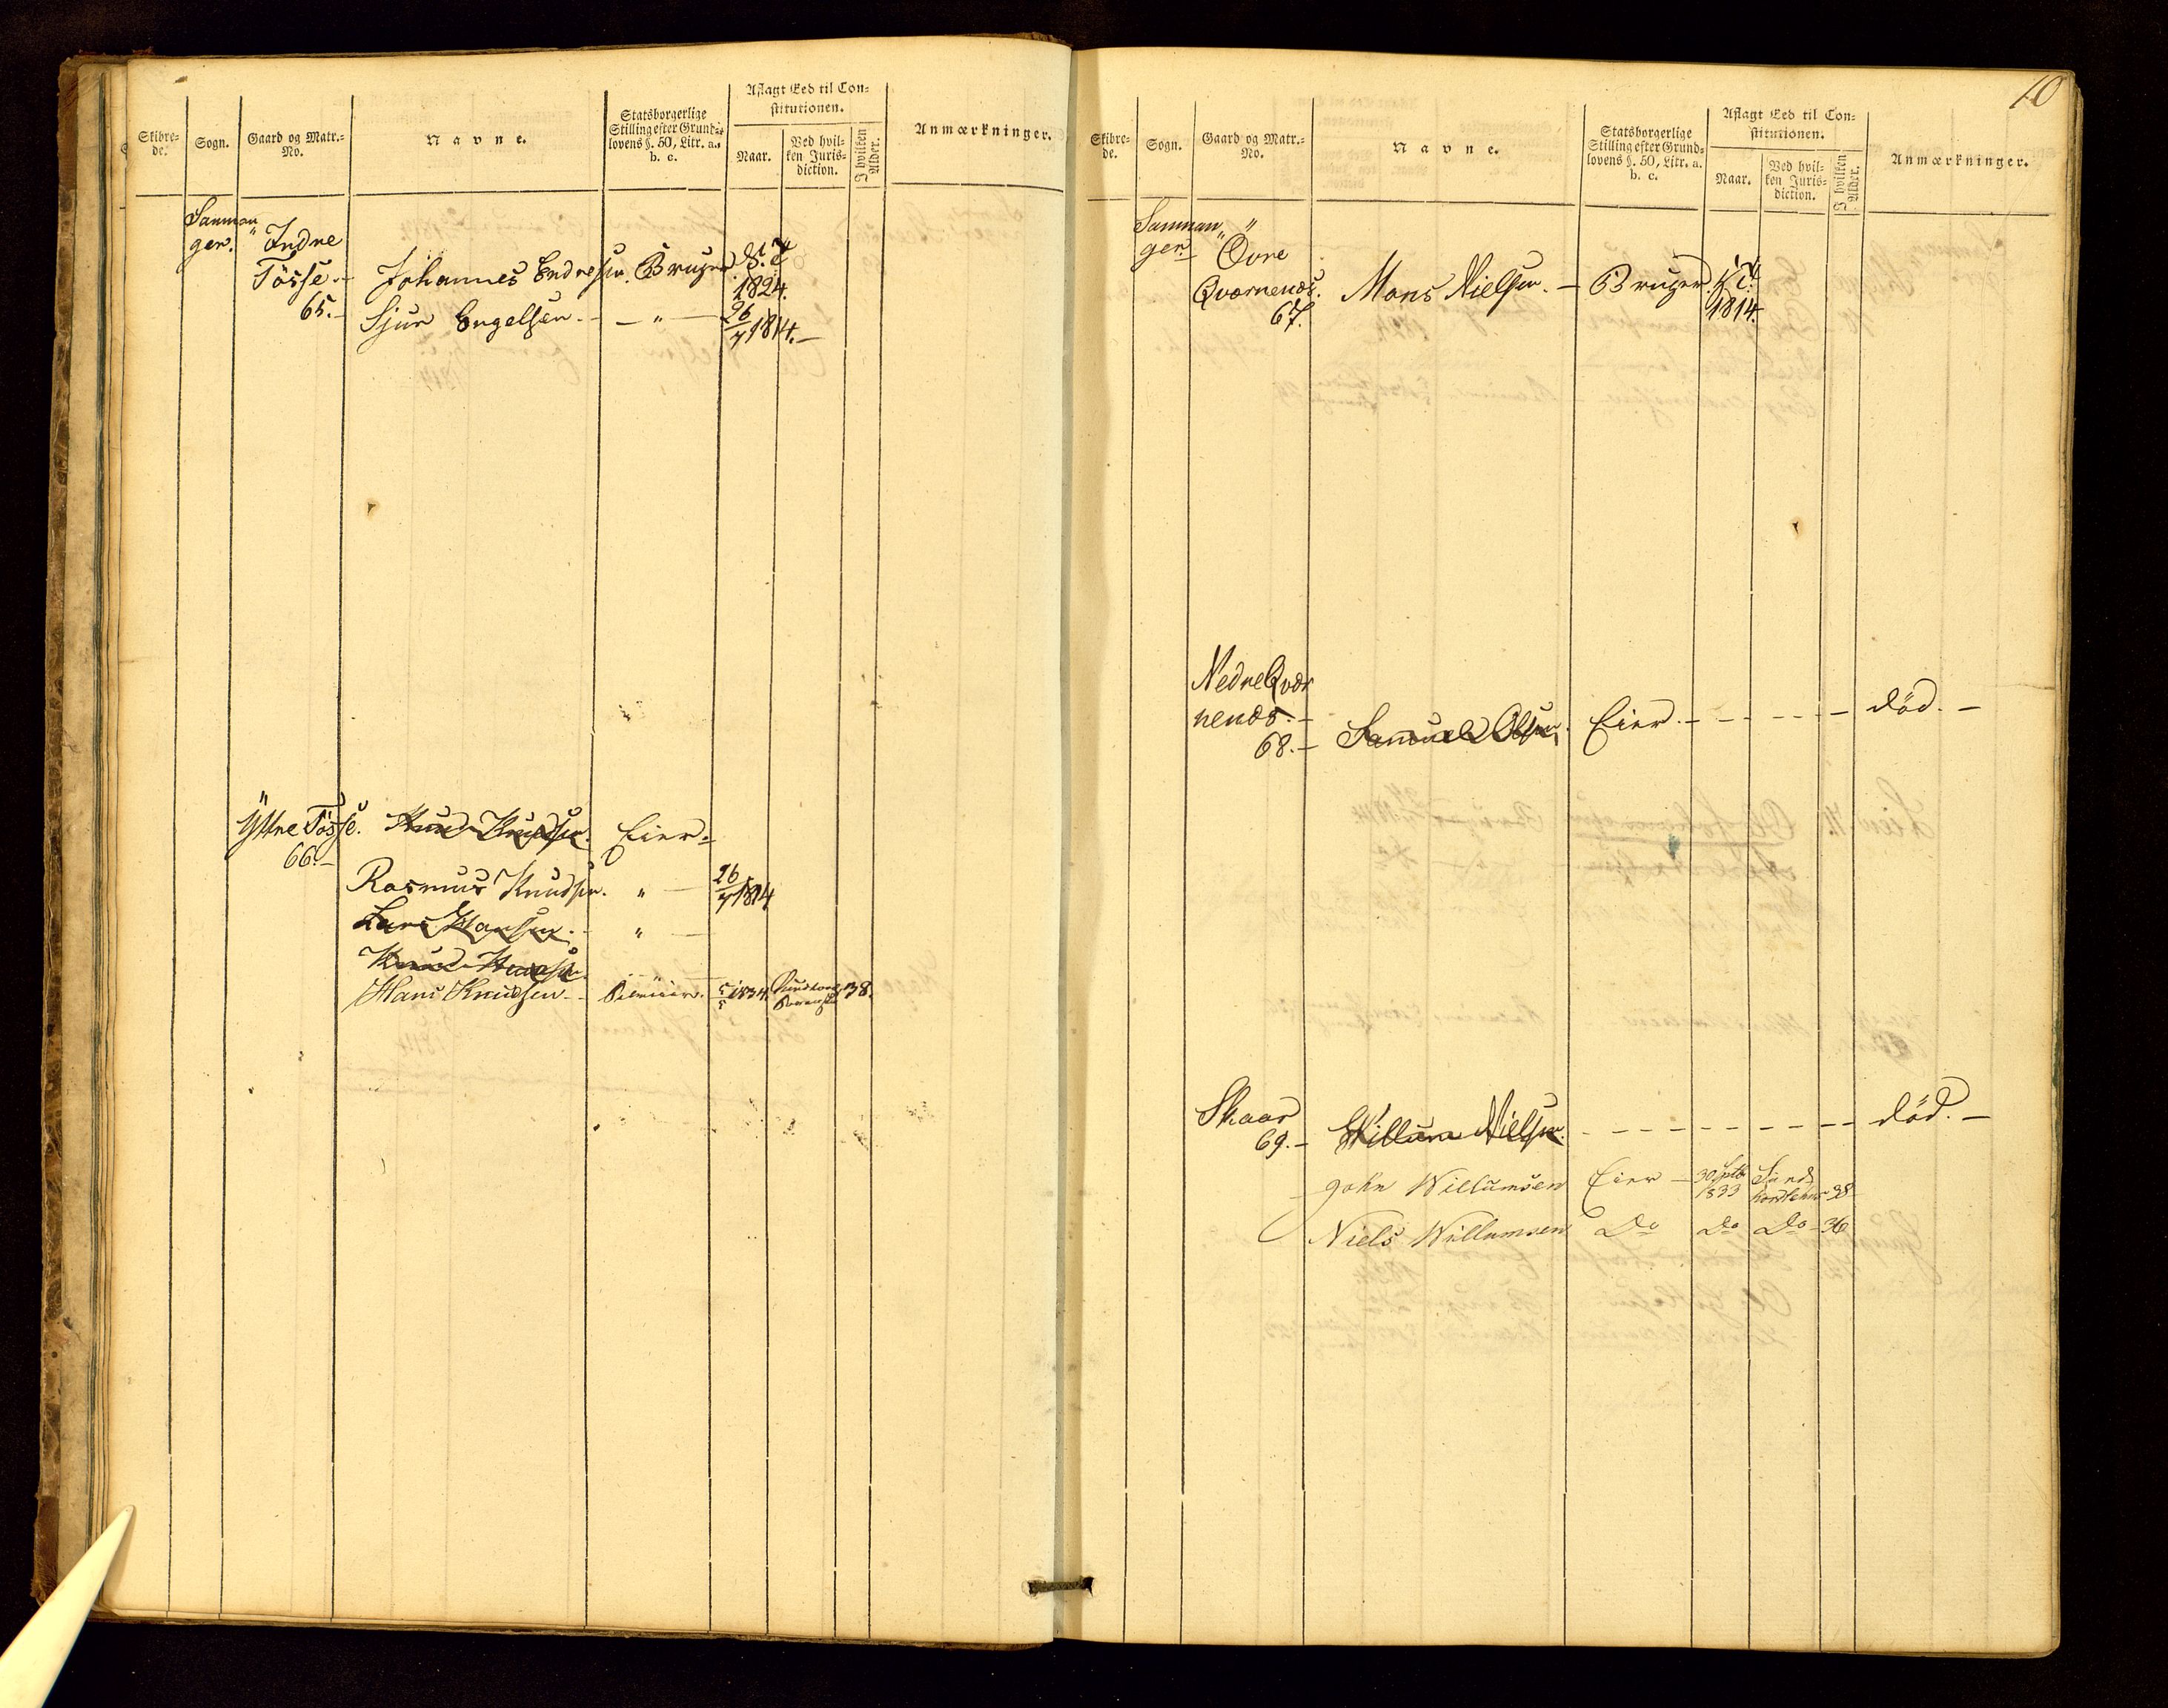 Skibre-
de.
Sogn.
Gaard og Matr.-
No.
Navne.
Statsborgerlige
Stilling efter Grund-
lovens §. 50, Litr. a.
b. c.
Aflagt Eed til Con-
stitutionen.
Naar.
Ved hvil-
ken Juris-
diction.
I hvilken
Alder.
Anmærkninger.
Samnan
ger.
Indre
Tösse.-
65.-
Johannes Endresen. Bruger
1824.
Sjur Engelsen.- - " - 26/7 1814.-
Ÿttre Tösse.
66.-
Knud Knudsen. Eier.-
Rasmus Knudsen. " - 26/7 1814
Lars Hansen.- "
Knud
Hans Knudsen.- 5/5 1834. 38.
10
Skibre-
de.
Sogn.
Gaard og Matr.-
No.
Navne.
Statsborgerlige
Stilling efter Grund-
lovens §. 50, Litr. a.
b. c.
Aflagt Eed til Con-
stitutionen.
Naar.
Ved hvil-
ken Juris-
diction.
I hvilken
Alder.
Anmærkninger.
Samnan
ger.-
Övre
Qvernenæs.
67.
Mons Nielsen. - Bruger.
1814.
Nedre Qvær
nenæs.-
68.-
Samuel Olsen. Eier.- - - - - - död.-
Skaar
69.-
Willum Nielsen. - - - - - - död.-
John Willumsen Eier - 30 Septb 1833 Sund
hordlehn 38
Niels Willumsen Do Do Do - 36